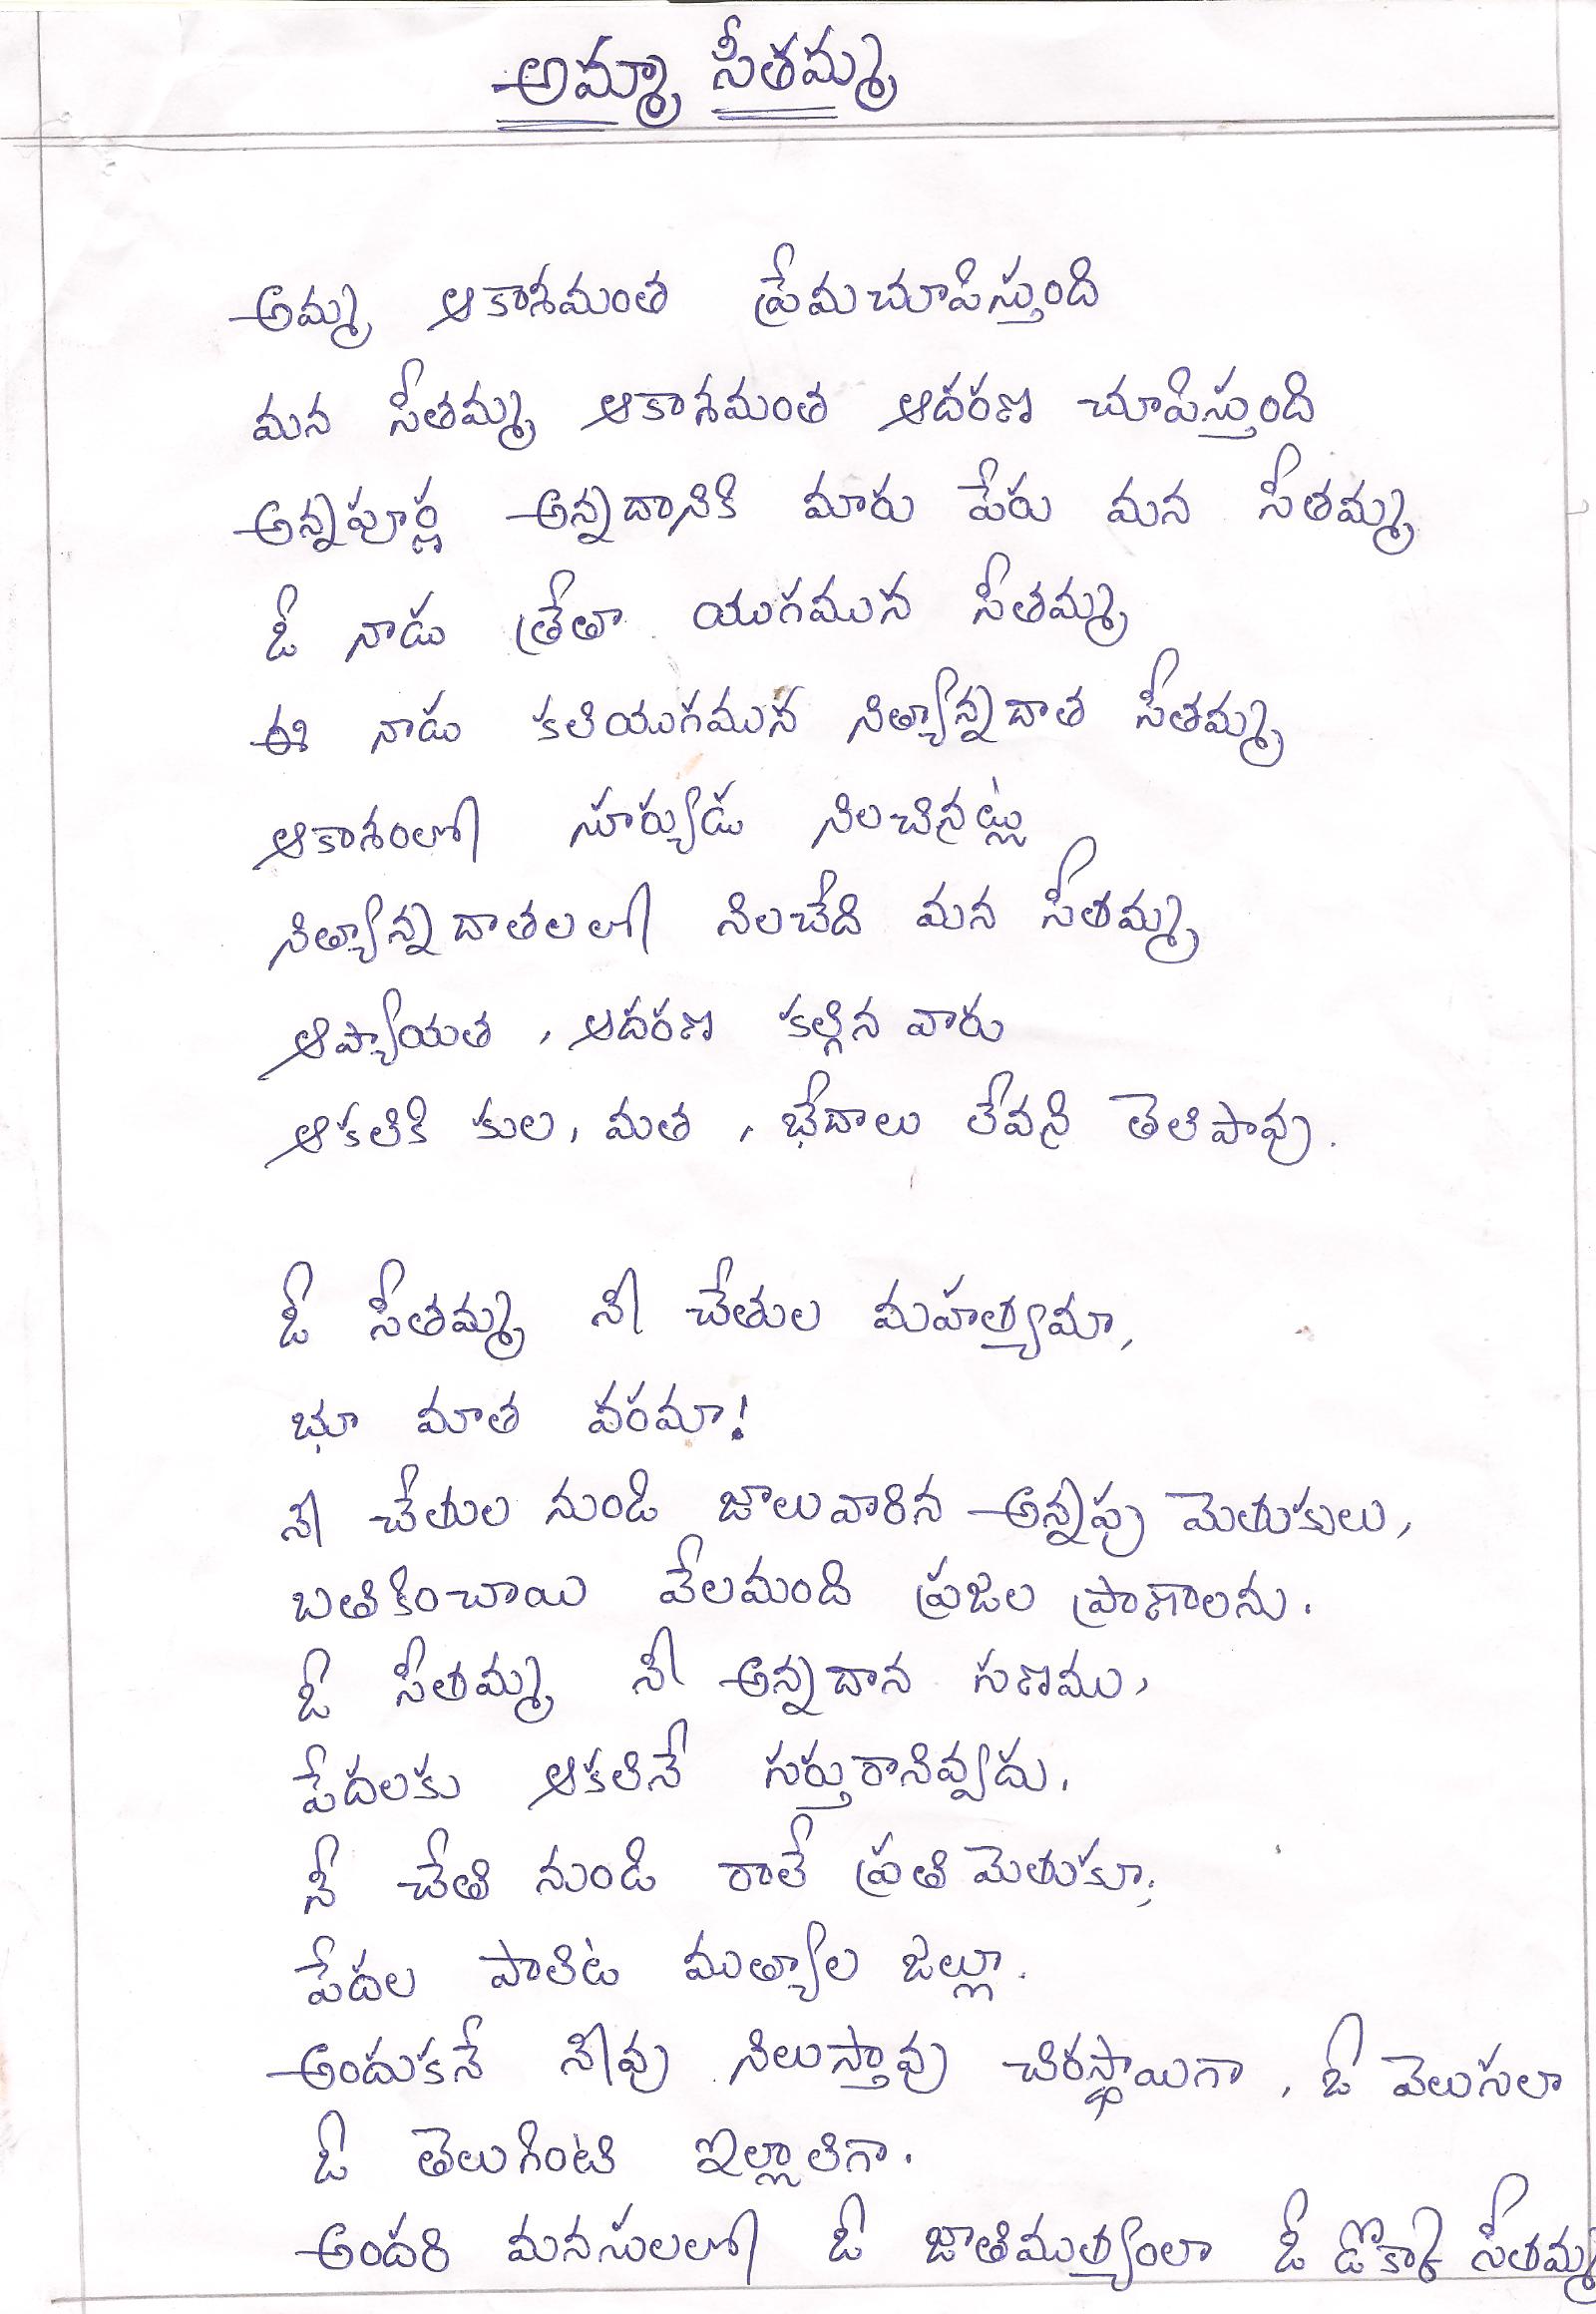 అమ్మా సీతమ్మ
అమ్మ ఆకాశమంత ప్రేమచూపిస్తుంది
మన సీతమ్మ ఆకాశమంత ఆదరణ చూపిస్తుంది
అన్నపూర్ణ అన్నదానికి మారు పేరు మన సీతమ్మ
ఓ నాడు త్రేతా యుగమున సీతమ్మ
ఈ నాడు కలియుగమున నిత్యాన్నదాత సీతమ్మ
ఆకాశంలో సూర్యుడు నిలచినట్లు
నిత్యాన్నదాతలలో నిలచేది మన సీతమ్మ
ఆప్యాయత, ఆదరణ కల్గిన వారు
ఆకలికి కుల, మత, భేదాలు లేవని తెలిపావు.
ఓ సీతమ్మ నీ చేతుల మహత్యమా,
భూ మాత వరమా!
నీ చేతుల నుండి జాలువారిన అన్నపు మెతుకులు,
బతికించాయి వేలమంది ప్రజల ప్రాణాలను.
ఓ సీతమ్మ నీ అన్నదాన గుణము,
పేదలకు ఆకలినే గుర్తురానివ్వదు.
నీ చేతి నుండి రాలే ప్రతి మెతుకూ,
పేదల పాలిట ముత్యాల జల్లూ.
అందుకనే నీవు నిలుస్తావు చిరస్థాయిగా, ఓ వెలుగులా
ఓ తెలుగింటి ఇల్లాలిగా.
అందరి మనసులలో ఓ జాతిముత్యంలా ఓ డొక్కా సీతమ్మ